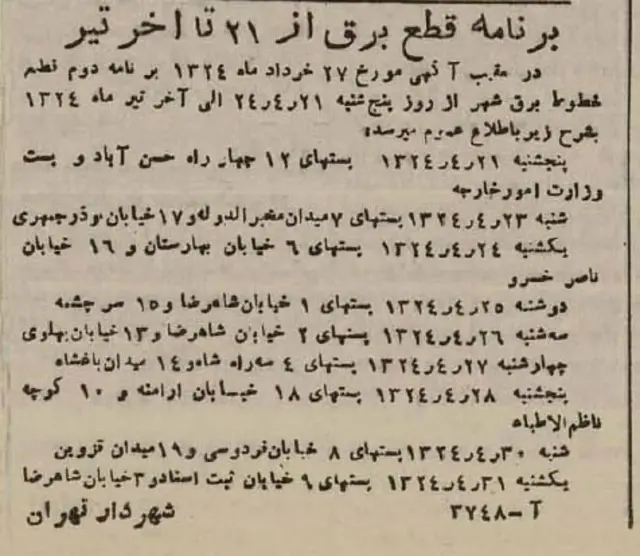 برنامه قطع برق از ۲۱ تا آخر تیر
در عقب آگهی مورخ ۲۷ خرداد ماه ۱۳۲۴ برنامه دوم قطع
خطوط برق شهر از روز پنج‌شنبه ۲۱ر۴ر۲۴ الی آخر تیر ماه ۱۳۲۴
بشرح زیر باطلاع عموم میرسد:
پنجشنبه ۲۱ر۴ر۱۳۲۴ بستهای ۱۲ چهار راه حسن آباد و پست
وزارت امور خارجه
شنبه ۲۳ر۴ر۱۳۲۴ بستهای ۷ میدان مخبرالدوله و ۱۷ خیابان بوذرجمهری
یکشنبه ۲۴ر۴ر۱۳۲۴ بستهای ۶ خیابان بهارستان و ۱۶ خیابان
ناصر خسرو
دوشنبه ۲۵ر۴ر۱۳۲۴ بستهای ۱ خیابان شاهرضا و ۱۵ سر چشمه
سه‌شنبه ۲۶ر۴ر۱۳۲۴ بستهای ۲ خیابان شاهرضا و ۱۳ خیابان پهلوی
چهارشنبه ۲۷ر۴ر۱۳۲۴ بستهای ۴ سه راه شاه و ۱۴ میدان باغشاه
پنجشنبه ۲۸ر۴ر۱۳۲۴ بستهای ۱۸ خیابان ارامنه و ۱۰ کوچه
ناظم‌الاطباء
شنبه ۳۰ر۴ر۱۳۲۴ بستهای ۸ خیابان فردوسی و ۱۹ میدان قزوین
یکشنبه ۳۱ر۴ر۱۳۲۴ بستهای ۹ خیابان ثبت اسناد و ۳ خیابان شاهرضا
آ-۳۷۴۸ شهردار تهران